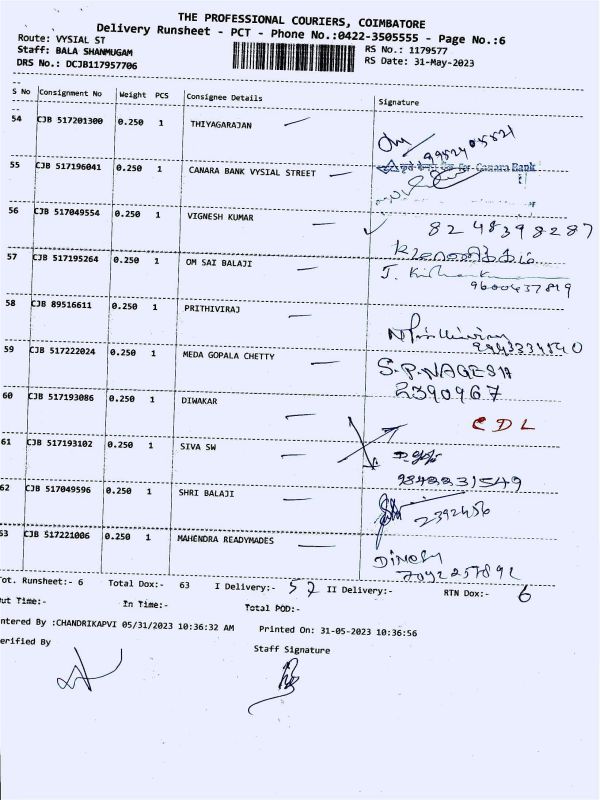 THE PROFESSIONAL COURIERS, COIMBATORE
Delivery Runsheet - PCT - Phone No.:0422-3505555 - Page No.:6
Route: VYSIAL ST
RS No.: 1179577
Staff: BALA SHANMUGAM
RS Date: 31-May-2023
DRS No.: DCJB117957706
S No Consignment No Weight PCS Consignee Details Signature
54 CJB 517201300 0.250 1 THIYAGARAJAN
55 CJB 517196041 0.250 1 CANARA BANK VYSIAL STREET
For Canara Bank
56 CJB 517049554 0.250 1 VIGNESH KUMAR
8248398287
57 CJB 517195264 0.250 1 OM SAI BALAJI
9600437819
58 CJB 89516611 0.250 1 PRITHIVIRAJ
59 CJB 517222024 0.250 1 MEDA GOPALA CHETTY
S.P.NAGESH
2390967
60 CJB 517193086 0.250 1 DIWAKAR
CDL
61 CJB 517193102 0.250 1 SIVA SW
62 CJB 517049596 0.250 1 SHRI BALAJI
2392456
53 CJB 517221006 0.250 1 MAHENDRA READYMADES
DINESH
Tot. Runsheet:- 6 Total Dox:- 63 I Delivery:- 57 II Delivery:- RTN Dox:- 6
Out Time:- In Time:- Total POD:-
ntered By :CHANDRIKAPVI 05/31/2023 10:36:32 AM Printed On: 31-05-2023 10:36:56
erified By Staff Signature